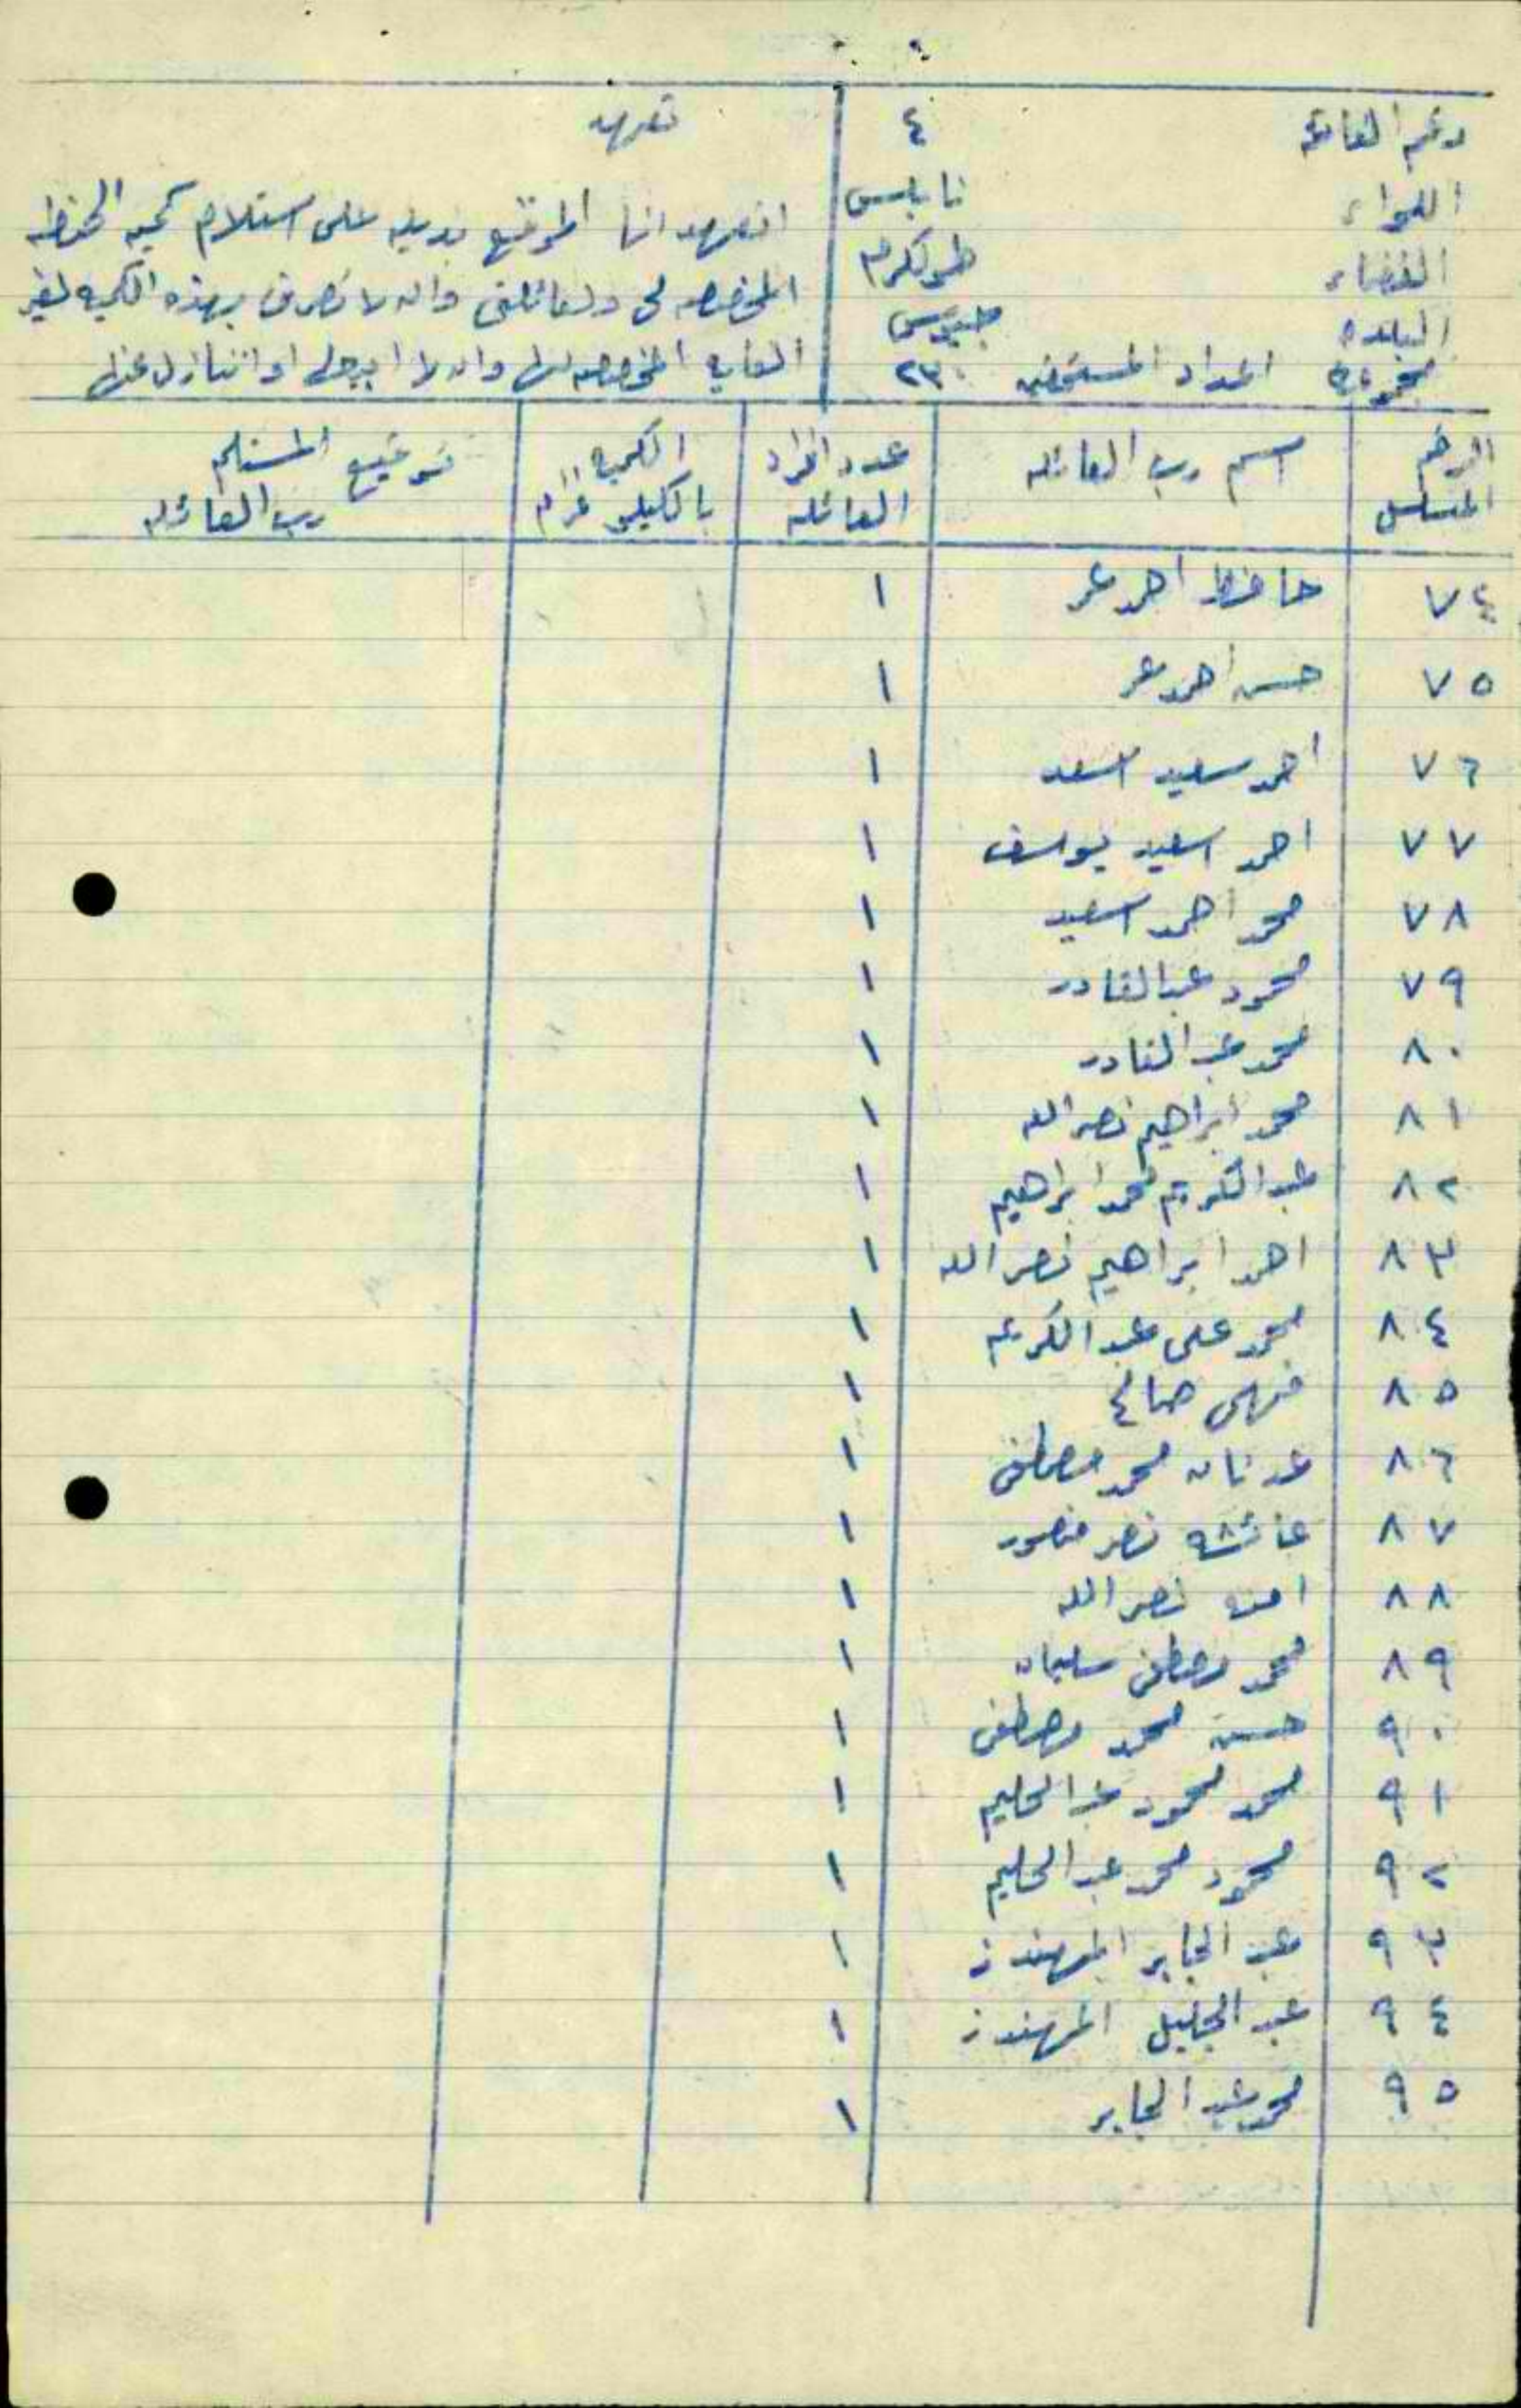 رقم القائمة ٤
اللواء نابلس
القضاء طولكرم
البلده جيوس
مجموع اعداد المستحقين ٢٣٠
تعهد
اتعهد انا الموقع بذيله على استلام كمية الحنطه
المخصصه لي ولعائلتي وان لا تصرف بهذه الكميه لغير
الغايه المخصصه لها وان لا ابيعها او اتنازل عنها
الرقم المتسلسل | اسم رب العائله | عدد افراد العائله | الكميه بالكيلو غرام | توقيع المستلم رب العائله
٧٤ حافظ احمد عمر ١
٧٥ حسن احمد عمر ١
٧٦ احمد سعيد اسعد ١
٧٧ احمد اسعيد يوسف ١
٧٨ محمد احمد اسعيد ١
٧٩ محمود عبد القادر ١
٨٠ محمد عبد القادر ١
٨١ محمد ابراهيم نصر الله ١
٨٢ عبد الكريم محمد ابراهيم ١
٨٣ احمد ابراهيم نصر الله ١
٨٤ محمد علي عبد الكريم ١
٨٥ فهمي صالح ١
٨٦ عدنان محمد مصطفى ١
٨٧ عائشه نصر منصور ١
٨٨ امنه نصر الله ١
٨٩ محمد مصطفى سليمان ١
٩٠ حسن محمد مصطفى ١
٩١ محمد محمود عبد الحليم ١
٩٢ محمود محمد عبد الحليم ١
٩٣ عبد الجابر المهندز ١
٩٤ عبد الجليل المهندز ١
٩٥ محمد عبد الجابر ١